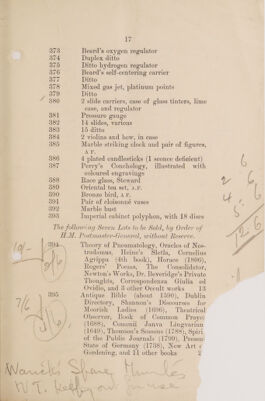 17
373 Beard's oxygen regulator
374 Duplex ditto
375 Ditto hydrogen regulator
376 Beard's self-centering carrier
377 Ditto
378 Mixed gas jet, platinum points
379 Ditto
380 2 slide carriers, case of glass tinters, lime
case, and regulator
381 Pressure gauge
382 14 slides, various
383 15 ditto
384 2 violins and bow, in case
385 Marble striking clock and pair of figures,
A.F.
386 4 plated candlesticks (1 sconce deficient)
387 Percy's Conchology, illustrated with
coloured engravings
388 Race glass, Steward
389 Oriental tea set, A.F.
390 Bronze bird, A.F.
391 Pair of cloisonné vases
392 Marble bust
393 Imperial cabinet polyphon, with 18 discs
The following Seven Lots to be Sold, by Order of
H.M. Postmaster-General, without Reserve.
394 Theory of Pneumatology, Oracles of Nos-
tradamus, Heine's Sletla, Cornelius
Agrippa (4th book), Horace (1806),
Rogers' Poems, The Consolidator,
Newton's Works, Dr. Beveridge's Private
Thoughts, Correspondenza Giulia ed
Ovidio, and 3 other Occult works 13
395 Antique Bible (about 1590), Dublin
Directory, Shannon's Discourses for
Moorish Ladies (1696), Theatrical
Observer, Book of Common Prayer
(1688), Comenii Janva Lingvarim
(1649), Thomson's Seasons (1788), Spirit
of the Public Journals (1799), Present
State of Germany (1738), New Art
Gardening, and 11 other books 2
2 6
4
5 6
12 6
7/6